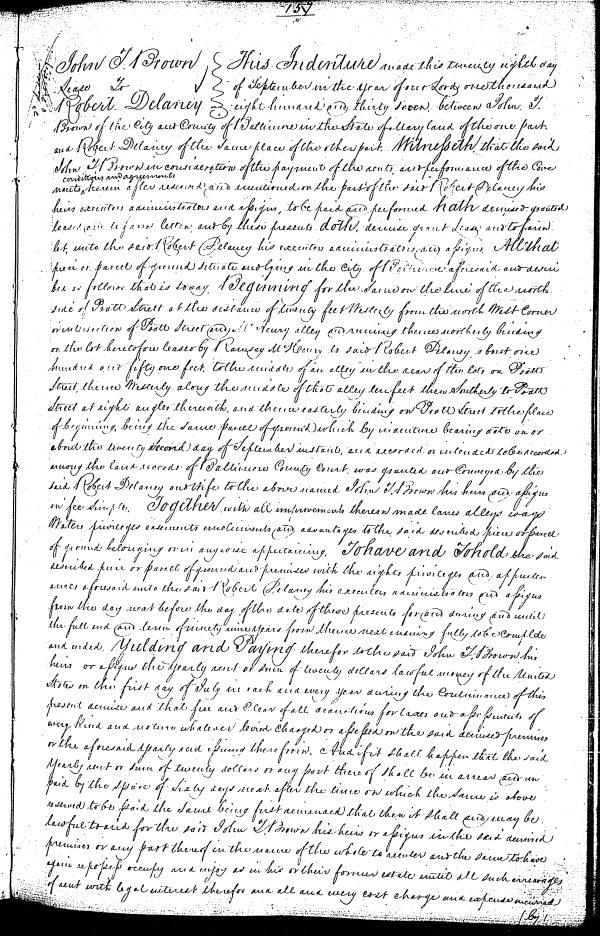 157
John T. Brown
Lease To
Robert Delaney
This Indenture made this twenty eighth day
of September in the year of our Lord, one thousand
eight hundred and thirty seven, between John T.
Brown of the City and County of Baltimore in the State of Maryland of the one part
and Robert Delaney of the same place of the other part. Witnesseth, that the said
John T. Brown in consideration of the payment of the rents, and performance of the Cove
conditions and agreements
nants, herein after reserved and mentioned on the part of the said Robert Delaney his
heirs executors administrators and assigns, to be paid and performed hath demised granted
leased and to farm letten, and by these presents doth, demise grant lease and to farm
let, unto the said Robert Delaney his executors administrators and assigns All that
piece or parcel of ground situate and lying in the City of Baltimore aforesaid and descri
bed as follows that is to say, Beginning for the same on the line of the north
side of Pratt Street at the distance of twenty feet Westerly from the north West Corner
or intersection of Pratt Street and Mc Henry alley and running thence northerly binding
on the lot heretofore leased by Ramsay McHenry to said Robert Delaney about one
hundred and fifty one feet, to the middle of an alley in the rear of the lots on Pratt
Street, thence Westerly along the middle of that alley ten feet thence Southerly to Pratt
Street at right angles therewith, and thence easterly binding on Pratt Street to the place
of beginning, being the same parcel of ground which by indenture bearing date on or
about the twenty second day of September instant, and recorded or intended to be recorded
among the land records of Baltimore County Court, was granted and Conveyed by the
said Robert Delaney and wife to the above named John T. Brown his heirs and assigns
in fee simple. Together with all improvements thereon made lanes alleys ways
Waters privileges easements emoluments and advantages to the said described piece or parcel
of ground belonging or in anywise appertaining. To have and To hold the said
described piece or parcel of ground and premises with the rights privileges and appurten
ances aforesaid unto the said Robert Delaney his executors administrators and assigns
from the day next before the day of the date of these presents for and during and until
the full end and term of ninety nine years from thence next ensuing fully to be complete
and ended. Yielding and Paying therefor to the said John T. Brown his
heirs or assigns the yearly rent or sum of twenty dollars lawful money of the United
States on the first day of July in each and every year during the Continuance of this
present demise and that free and Clear of all deductions for taxes and assessments of
every kind and nature whatever levied charged or assessed on the said demised premises
or the aforesaid yearly rent issuing therefrom. And if it shall happen that the said
yearly rent or sum of twenty dollars or any part thereof shall be in arrear and un
paid by the space of sixty days next after the time on which the same is above
reserved to be paid the same being first demanded that then it shall and may be
lawful to and for the said John T. Brown his heirs or assigns in the said demised
premises or any part thereof in the name of the whole to reenter and the same to have
again repossess occupy and enjoy as in his or their former estate until all such arrearages
of rent with legal interest therefor and all and every cost charge and expense incurred
(by)